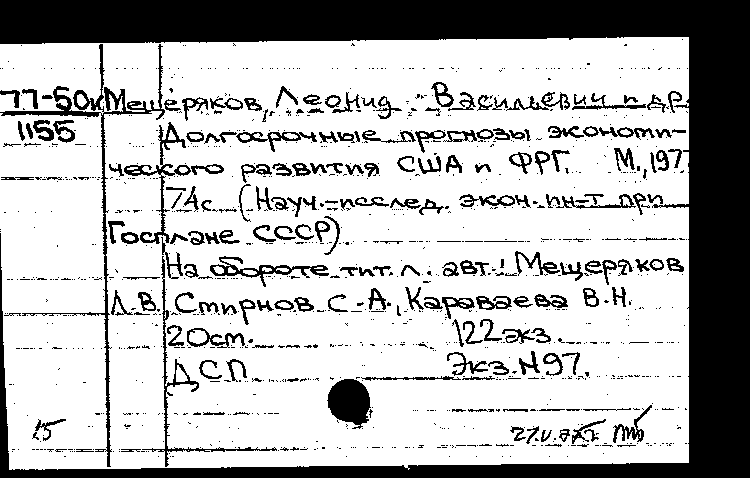 77-50к Мещеряков, Леонид Васильевич и др.
1155 Долгосрочные прогнозы экономи-
ческого развития США и ФРГ. М., 1977
74с (Науч.-исслед. экон. ин-т при
Госплане СССР)
На обороте тит. л. авт.: Мещеряков
Л.В., Смирнов С.А., Караваева В.Н.
20см. 122экз.
ДСП. Экз. N97.
15